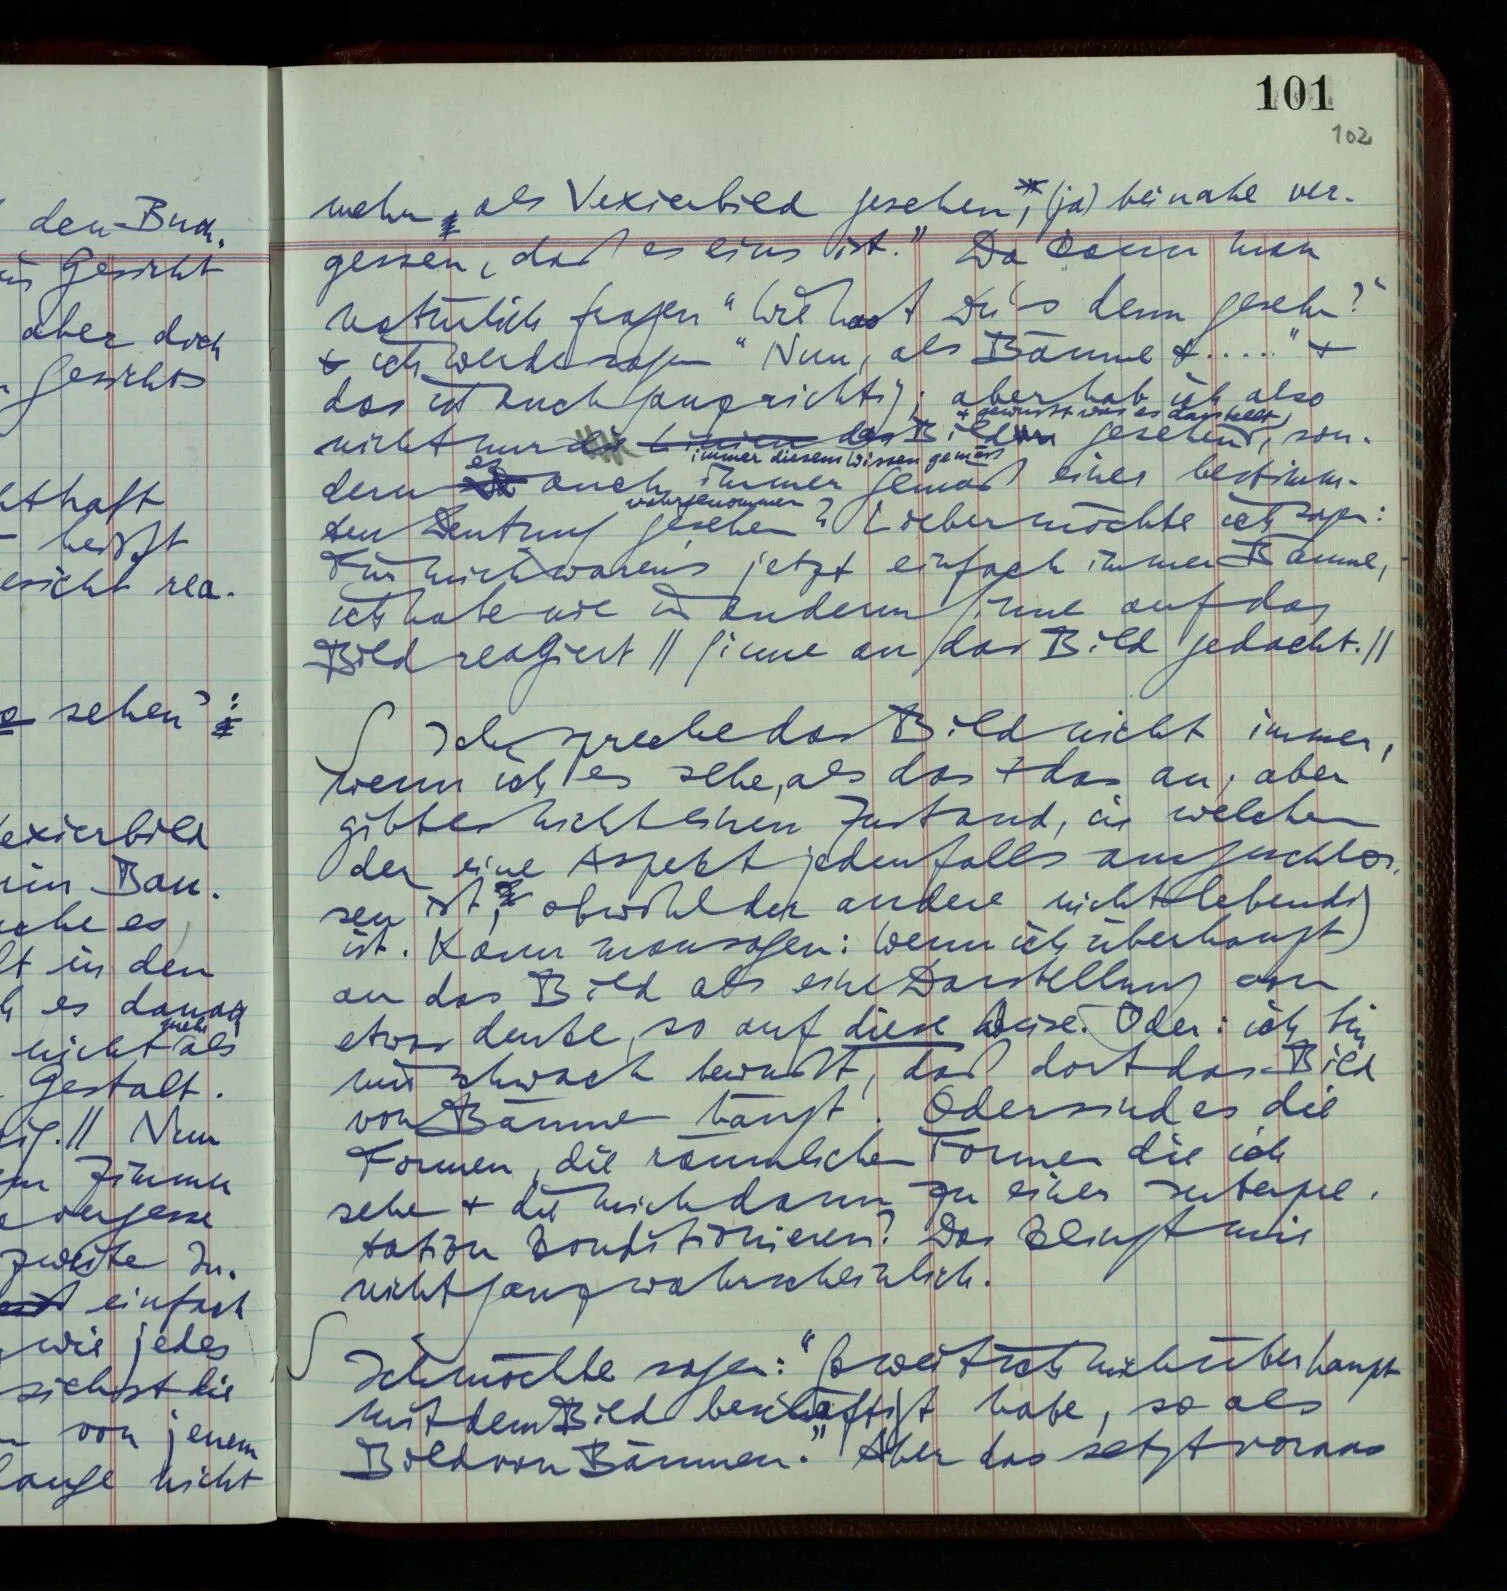 den Buch-
ein Gesicht
aber doch
Gesichts
hthaft
heißt
esicht rea-
so sehen":
Vexierbild
ein Bau-
ache es,
lt in den
es danach
mehr
nicht als
Gestalt.
tig.|| Nun
Zimmer
vergesse
zweite In-
einfach
wie jedes
sichst die
von jenem
lange nicht
101
102
mehr als Vexierbild gesehen, (ja) beinahe ver-
gessen, daß es eins ist." Da kann man
natürlich fragen "Wie hast Du's denn gesehen?"
& ich werde sagen "Nun, als Bäume & ....." &
das ist auch ganz richtig; aber hab ich also
& gewußt was es darstellt,
nicht nur die Linien des Bild gesehen, son-
immer diesem Wissen gemäss
dern es auch immer gemäß einer bestimm-
wahrgenommen
ten Deutung gesehen? Lieber möchte ich sagen:
Für mich waren's jetzt einfach immer Bäume,
ich habe nie in anderm Sinne auf das
Bild reagiert || Sinne an das Bild gedacht.||
∫ Ich spreche das Bild nicht immer,
wenn ich es sehe, als das & das an; aber
gibt es nicht einen Zustand, in welchem
der eine Aspekt jedenfalls ausgeschlos-
sen ist, obwohl der andere nicht lebendig
ist. Kann man sagen: Wenn ich überhaupt
an das Bild als eine Darstellung von
etwas denke, so auf diese Weise. Oder: ich bin
mir schwach bewußt, daß dort das Bild
von Bäumen hängt. Oder sind es die
Formen, die räumlichen Formen die ich
sehe & die mich dann zu einer Interpre-
tation konditionieren? Das klingt mir
nicht ganz wahrscheinlich.
∫ Ich möchte sagen: "Soweit ich mich überhaupt
mit dem Bild beschäftigt habe, so als
Bild von Bäumen." Aber das setzt voraus